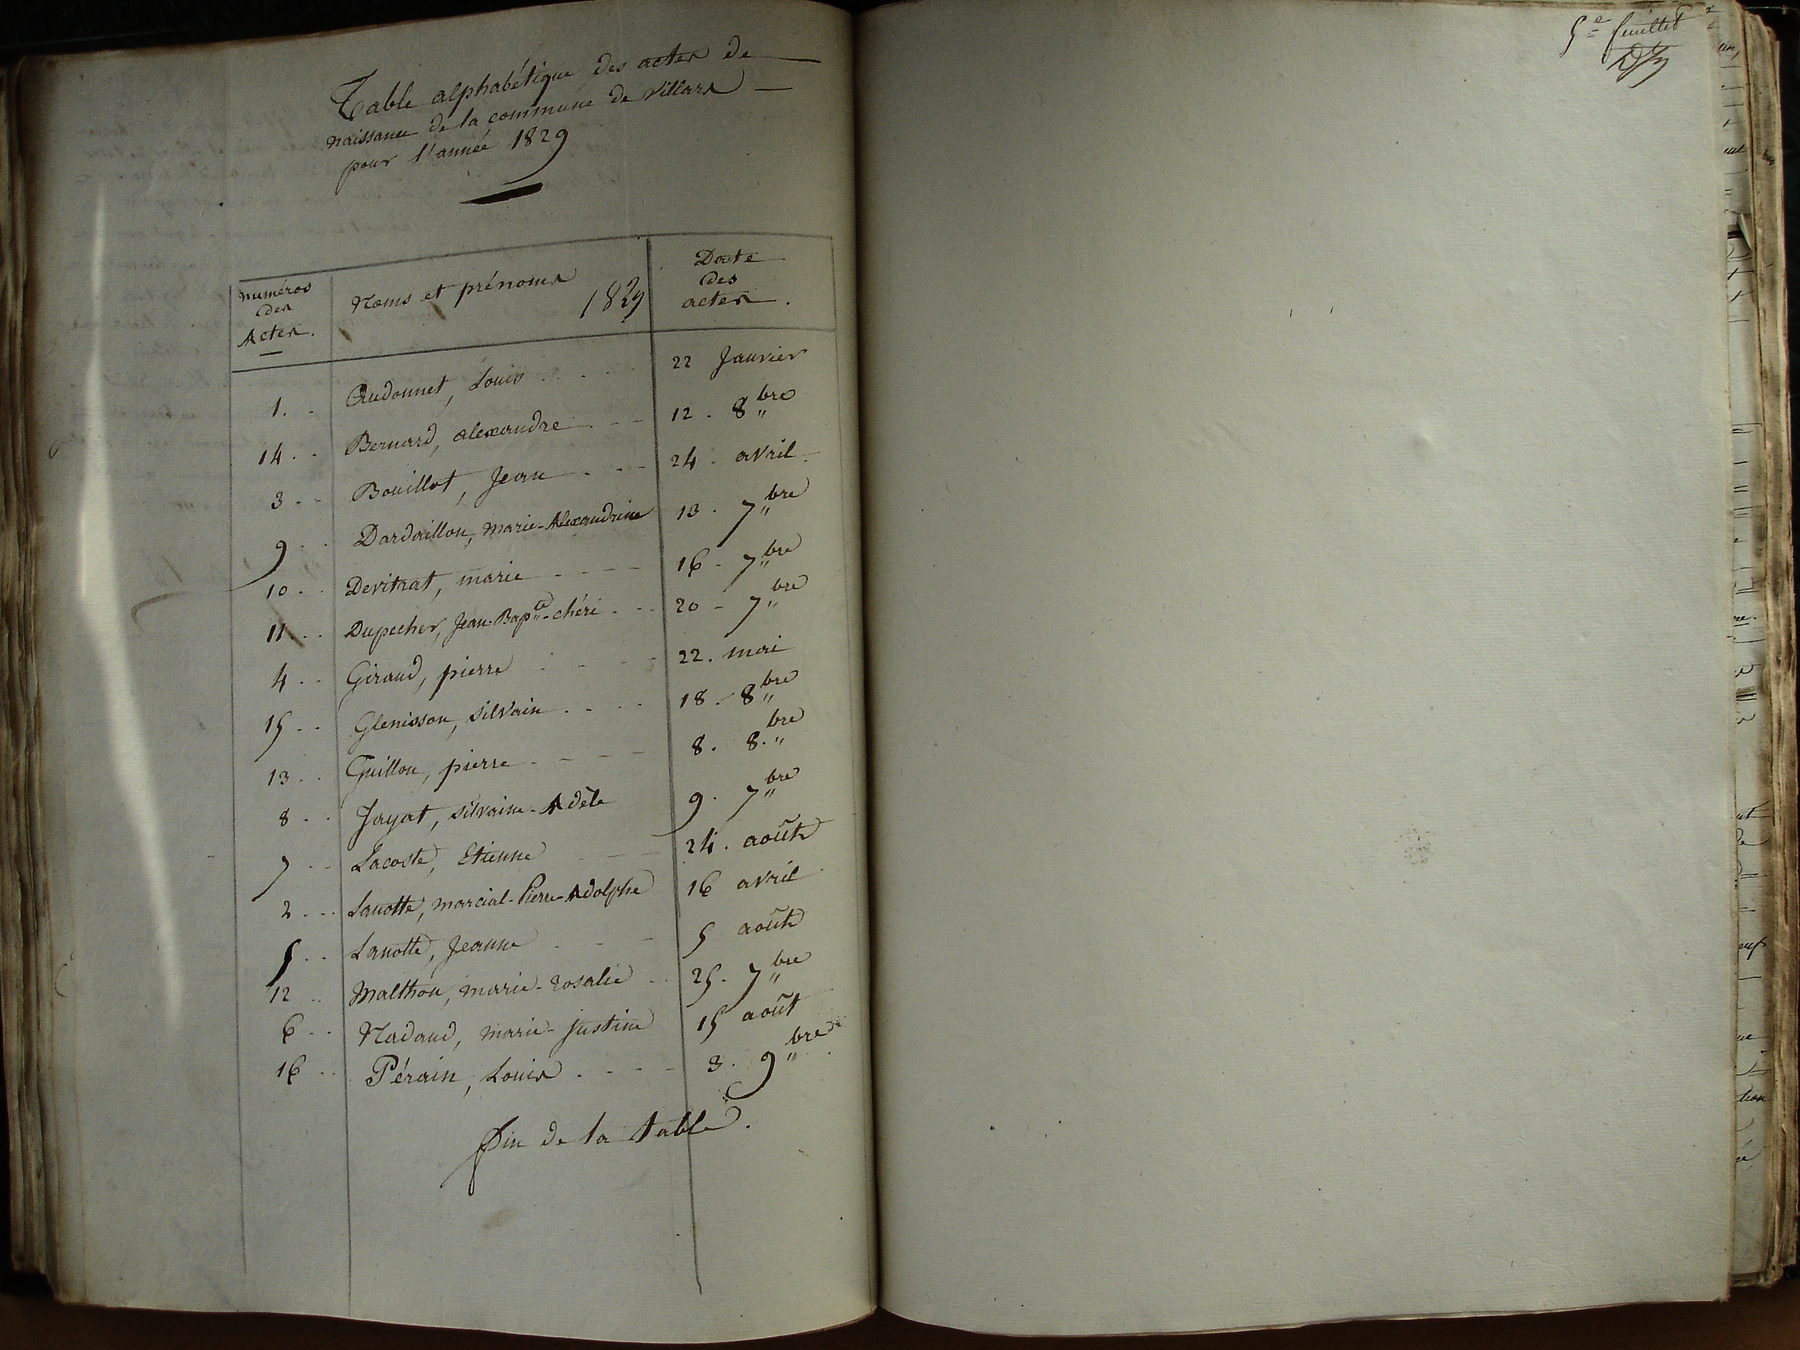 Table alphabétique des actes de
naissance de la commune de Villars
pour l'année 1829
numéros des Actes.
Noms et prénoms 1829
Date des actes.
1. Audonnet, Louis 22 Janvier
14. Bernard, alexandre 12. 8bre
3 Bouillot, Jean 24. avril
9 Dardaillon, marie-Alexandrine 13. 7bre
10 Devitrat, marie 16 - 7bre
11 Dupecher, Jean-Bapte-chéri 20 - 7bre
4 Giraud, pierre 22. mai
15 Glenisson, silvain 18. 8bre
13 Guillon, pierre 8. 8.bre
8 Jayat, silvaine-Adèle 9. 7bre
7 Lacoste, Etienne 24. août
2 Lanotte, marcial-Pierre-Adolphe 16 avril
5 Lanotte, Jeanne 5 août
12 Malthon, marie-rosalie 25. 7bre
6 Nadaud, marie-justine 15 août
16 Pérain, Louis 3. 9bre
fin de la table.
5e feuillet